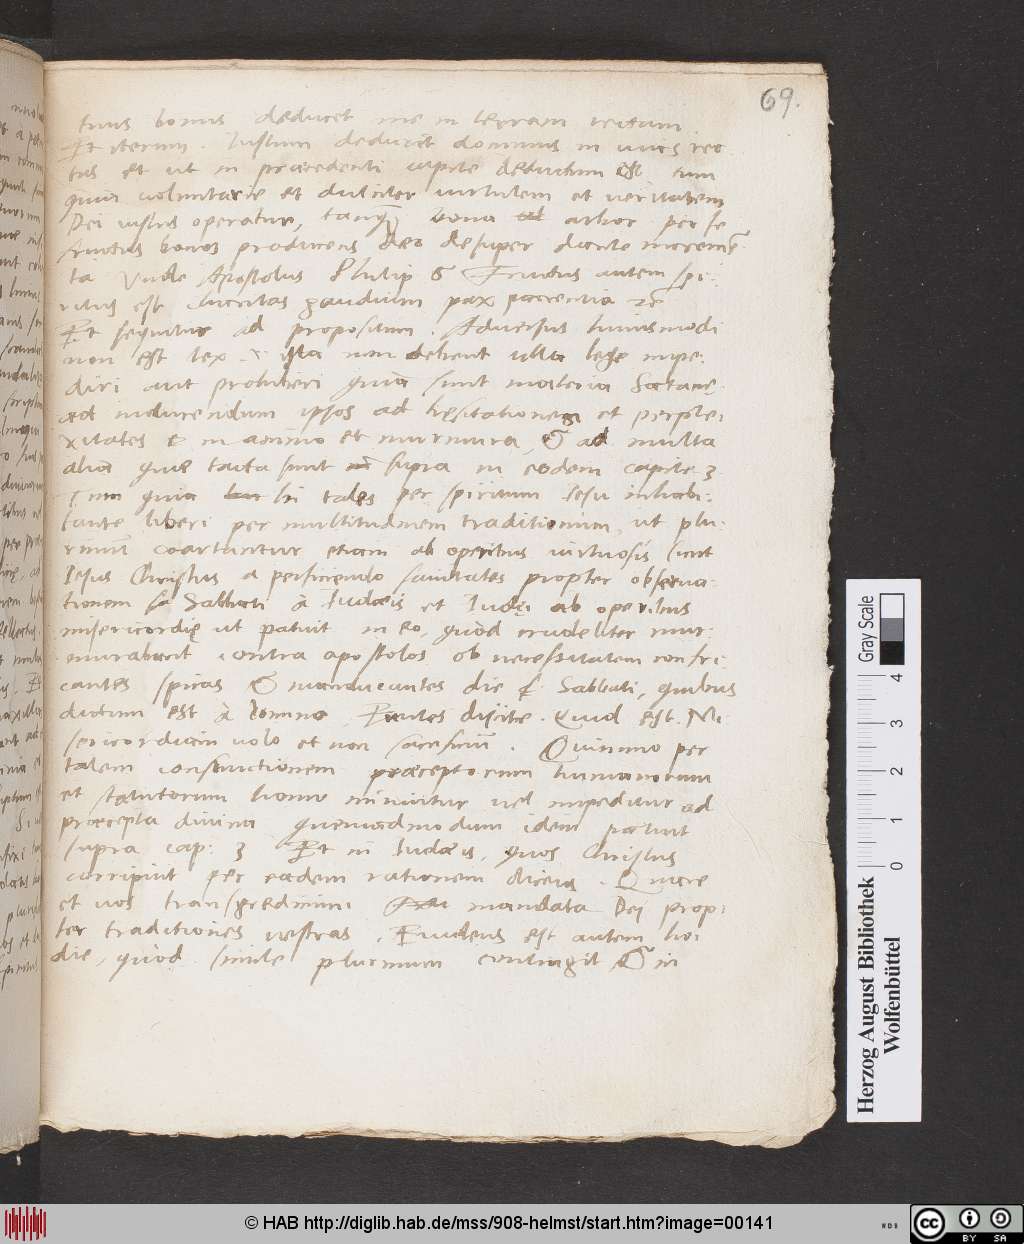 69.
tuus bonus deducet me in terram rectam.
Et iterum. Iustum deducet dominus in vias rec
tas et ut in præcedenti capite deductum est cum
quis voluntarie et dulciter virtutem et veritatem
Dei iustus operatur, tanq̃ bona arbor per se
fructus bonos producens deo desuper dante increme̅
ta Vnde Apostolus Philip 6 Fructus autem spi:
ritus est charitas gaudium pax pacientia
Et sequitur ad propositum. Adversus huiusmodi
non est lex. ista non debent ulla lege impe:
diri aut prohiberi quia sunt materia Satanę
ad inducendum ipsos ad hęsitationem et perple:
xitates in animo et murmura, & ad multa
alia que tacta sunt supra in eodem capite 3
Tum quia hi tales per spiritum Iesu inhabi:
tante liberi per multitudinem traditionum, ut plu:
rimum coartantur etiam ab operibus virtuosis sicut
Iesus Christus a perficiendo sanitates propter observa:
tionem Sabbati à Iudæis et Iudęi ab operibus
misericordię ut patuit in eo, quòd crudeliter mur:
murabant contra apostolos ob necessitatem confri:
cantes spicas & manducantes die Sabbati, quibus
dictum est à domino. Euntes discite. Quid est. Mi:
sericordiam volo et non sacrificiu̅. Quinimo per
talem constrictionem præceptorum humanorum
et statutorum homo minuitur vel impeditur ad
præcepta divina quemadmodum idem patuit
supra cap: 3 Et in Iudæis, quos Christus
corripuit per eadem rationem dicens. Quare
et vos transgredimini mandata Dei prop:
ter traditiones vestras. Euidens est autem ho:
die, quòd simile plurimum contingit & in
Gray Scale
0 1 2 3 4
Herzog August Bibliothek
Wolfenbüttel
© HAB http://diglib.hab.de/mss/908-helmst/start.htm?image=00141
WDB
cc BY SA